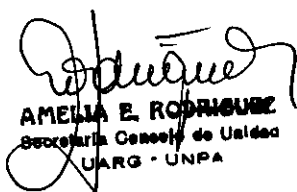 AMELIA E. RODRIGUEZ
Secretaria Consejo de Unidad
UARG - UNPA